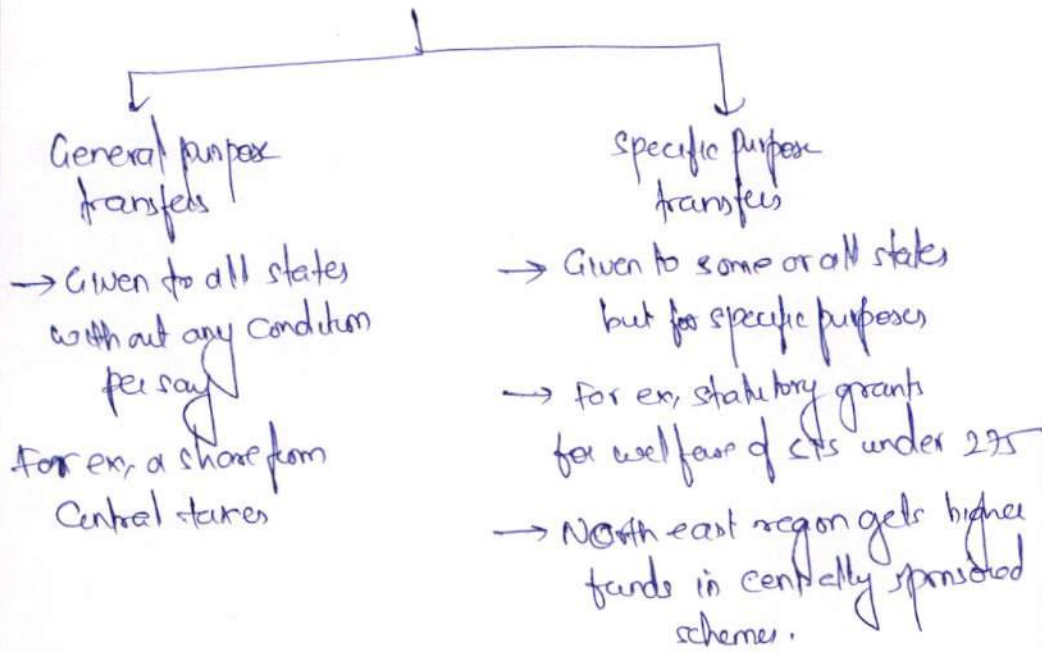 General purpose
transfers
→ Given to all states
without any condition
per say
For ex, a share from
Central taxes
Specific purpose
transfers
→ Given to some or all states
but for specific purposes
→ For ex, statutory grants
for welfare of STs under 275
→ North east region gets higher
funds in centrally sponsored
schemes.